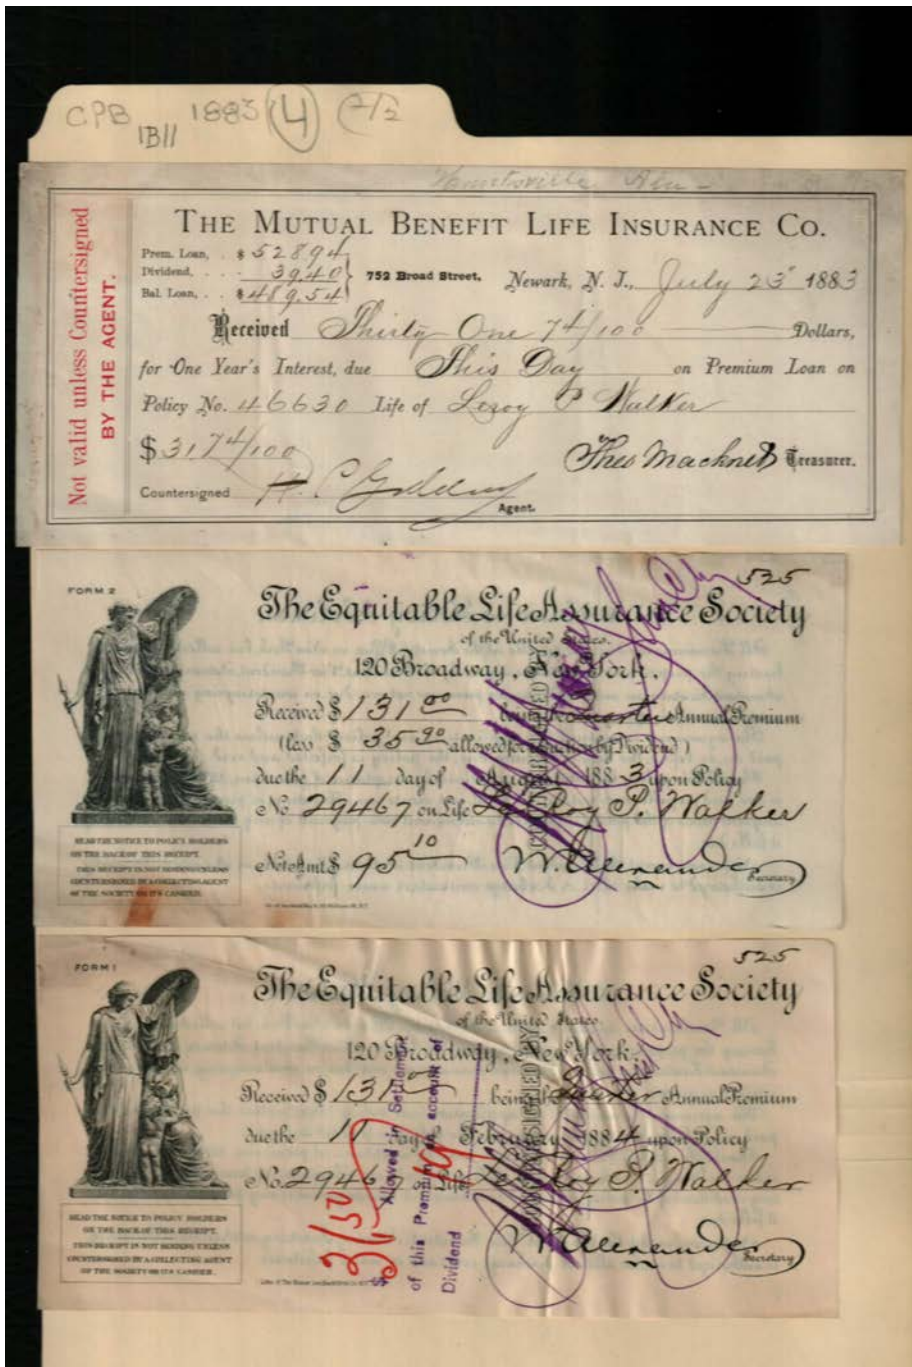 CPB 1883 4 2/3
1B11
Huntsville Ala
Not valid unless Countersigned
BY THE AGENT.
THE MUTUAL BENEFIT LIFE INSURANCE CO.
Prem. Loan, . $ 528.94
Dividend, . . . 39.40
Bal. Loan, . . $ 489.54
752 Broad Street, Newark, N. J., July 23 1883
Received Thirty One 74/100 Dollars,
for One Year's Interest, due This Day on Premium Loan on
Policy No. 46630 Life of Leroy P Walker
$ 31 74/100
Theo Macknet Treasurer.
Countersigned
Agent.
525
FORM 2
The Equitable Life Assurance Society
of the United States.
120 Broadway, New York.
Received $ 131 00 being the Quarter Annual Premium
(less $ 35 90 allowed for reduction by Dividend)
due the 11 day of August 1883 upon Policy
No 29467 on Life Le Roy P. Walker
Net Amt $ 95 10
W. Alexander Secretary
COUNTERSIGNED BY
READ THE NOTICE TO POLICY HOLDERS
ON THE BACK OF THIS RECEIPT.
THIS RECEIPT IS NOT BINDING UNLESS
COUNTERSIGNED BY A COLLECTING AGENT
OF THE SOCIETY OR ITS CASHIER.
525
FORM 1
The Equitable Life Assurance Society
of the United States
120 Broadway, New York.
Received $ 131 00 being the Quarter Annual Premium
due the 11 day of February 1884 upon Policy
No. 29467 on Life Le Roy P. Walker
W. Alexander Secretary
COUNTERSIGNED BY
$ Allowed in Settlement
of this Premium on account of
Dividend
READ THE NOTICE TO POLICY HOLDERS
ON THE BACK OF THIS RECEIPT.
THIS RECEIPT IS NOT BINDING UNLESS
COUNTERSIGNED BY A COLLECTING AGENT
OF THE SOCIETY OR ITS CASHIER.